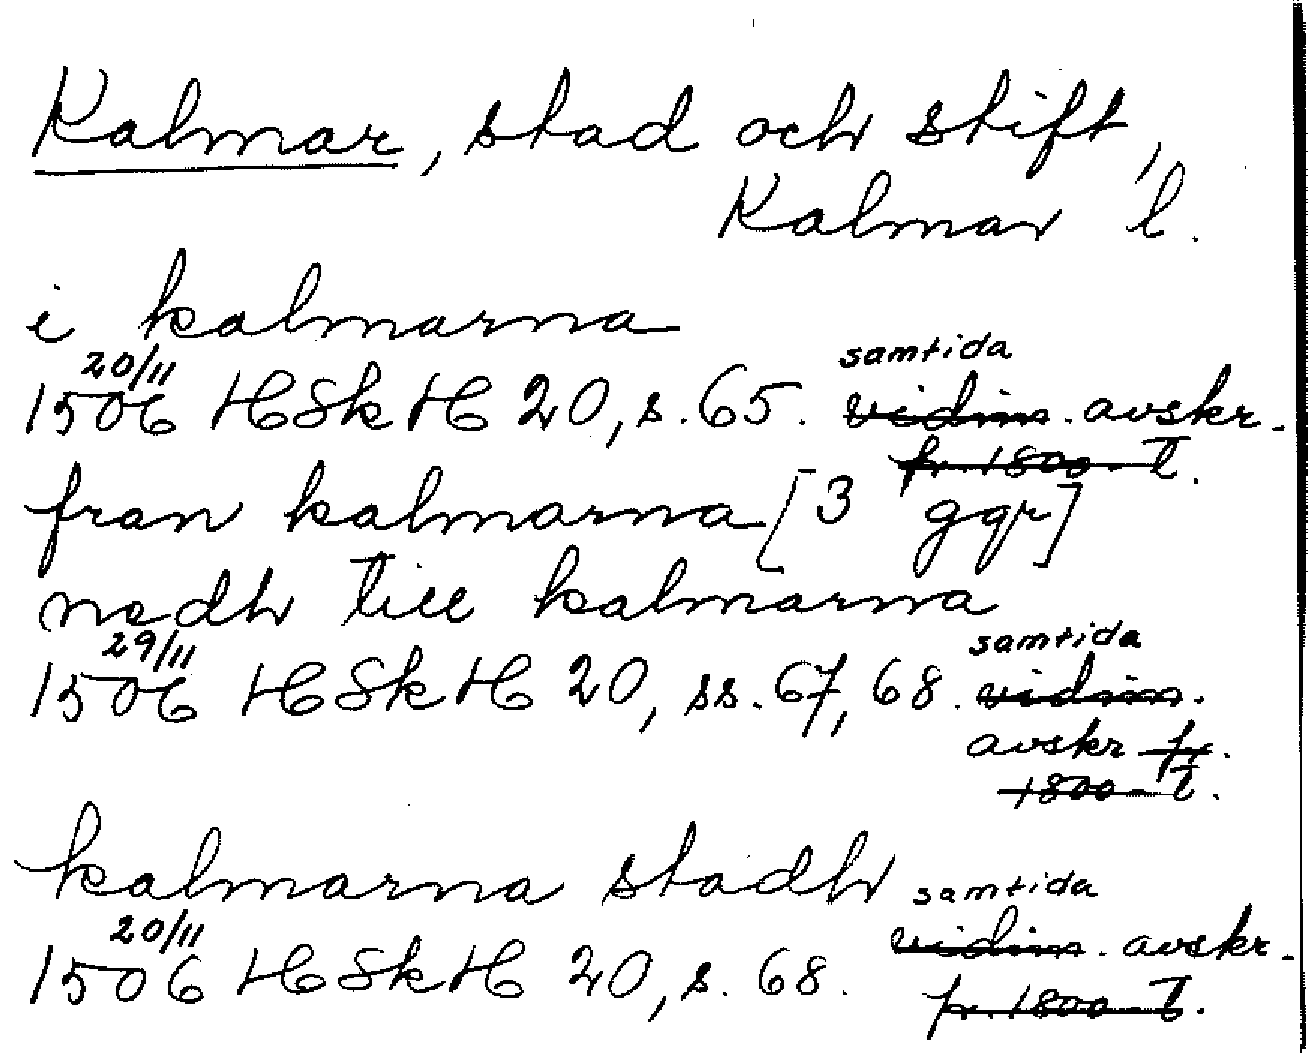 Kalmar, stad och stift,
Kalmar l.
i kalmarna
20/11 samtida
1506 HSkH 20, s. 65. vidim. avskr.
fr. 1800-t.
fran kalmarna [3 ggr]
nedh till kalmarna
29/11 samtida
1506 HSkH 20, ss. 67, 68. vidim.
avskr fr.
1800-t.
kalmarna stadh samtida
20/11 vidim. avskr.
1506 HSkH 20, s. 68. fr. 1800-t.